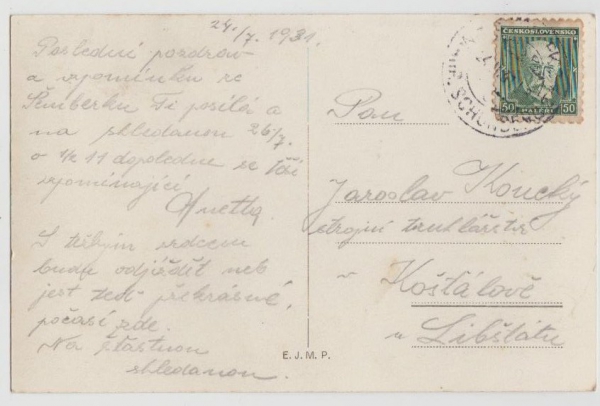 24./7. 1931.
Poslední pozdrav
a vzpomínku ze
Šemberku Ti posílá a
na shledanou 26/7.
o 1/2 11 dopoledne se těší
vzpomínající
Anetta.
S těžkým srdcem
budu odjíždět neb
jest teď překrásné
počasí zde.
Na šťastnou
shledanou.
E. J. M. P.
ČESKOSLOVENSKO
50 50
PALACKÝ
Pan
Jaroslav Koucký
strojní truhlářství
v
Košťálově
u Libštátu